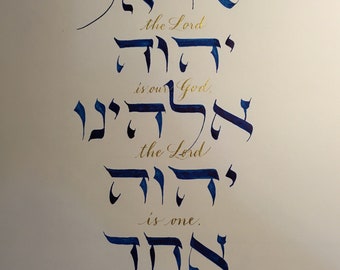 the Lord
יהוה
is our God,
אלהינו
the Lord
יהוה
is one.
אחד